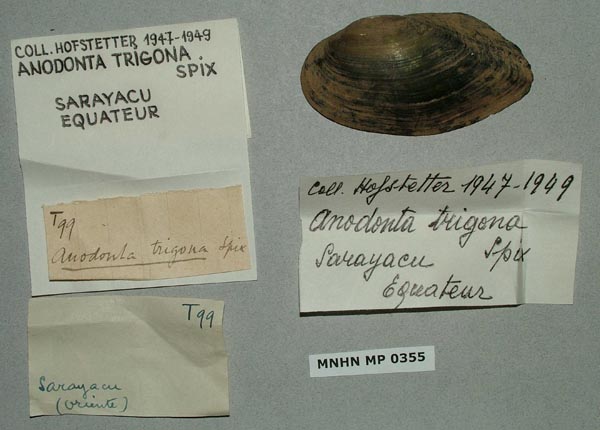 COLL. HOFSTETTER 1947-1949
ANODONTA TRIGONA
SPIX
SARAYACU
EQUATEUR
T99
Anodonta trigona Spix
T99
Sarayacu
(Oriente)
Coll. Hofstetter 1947-1949
Anodonta trigona
Spix
Sarayacu
Equateur
MNHN MP 0355